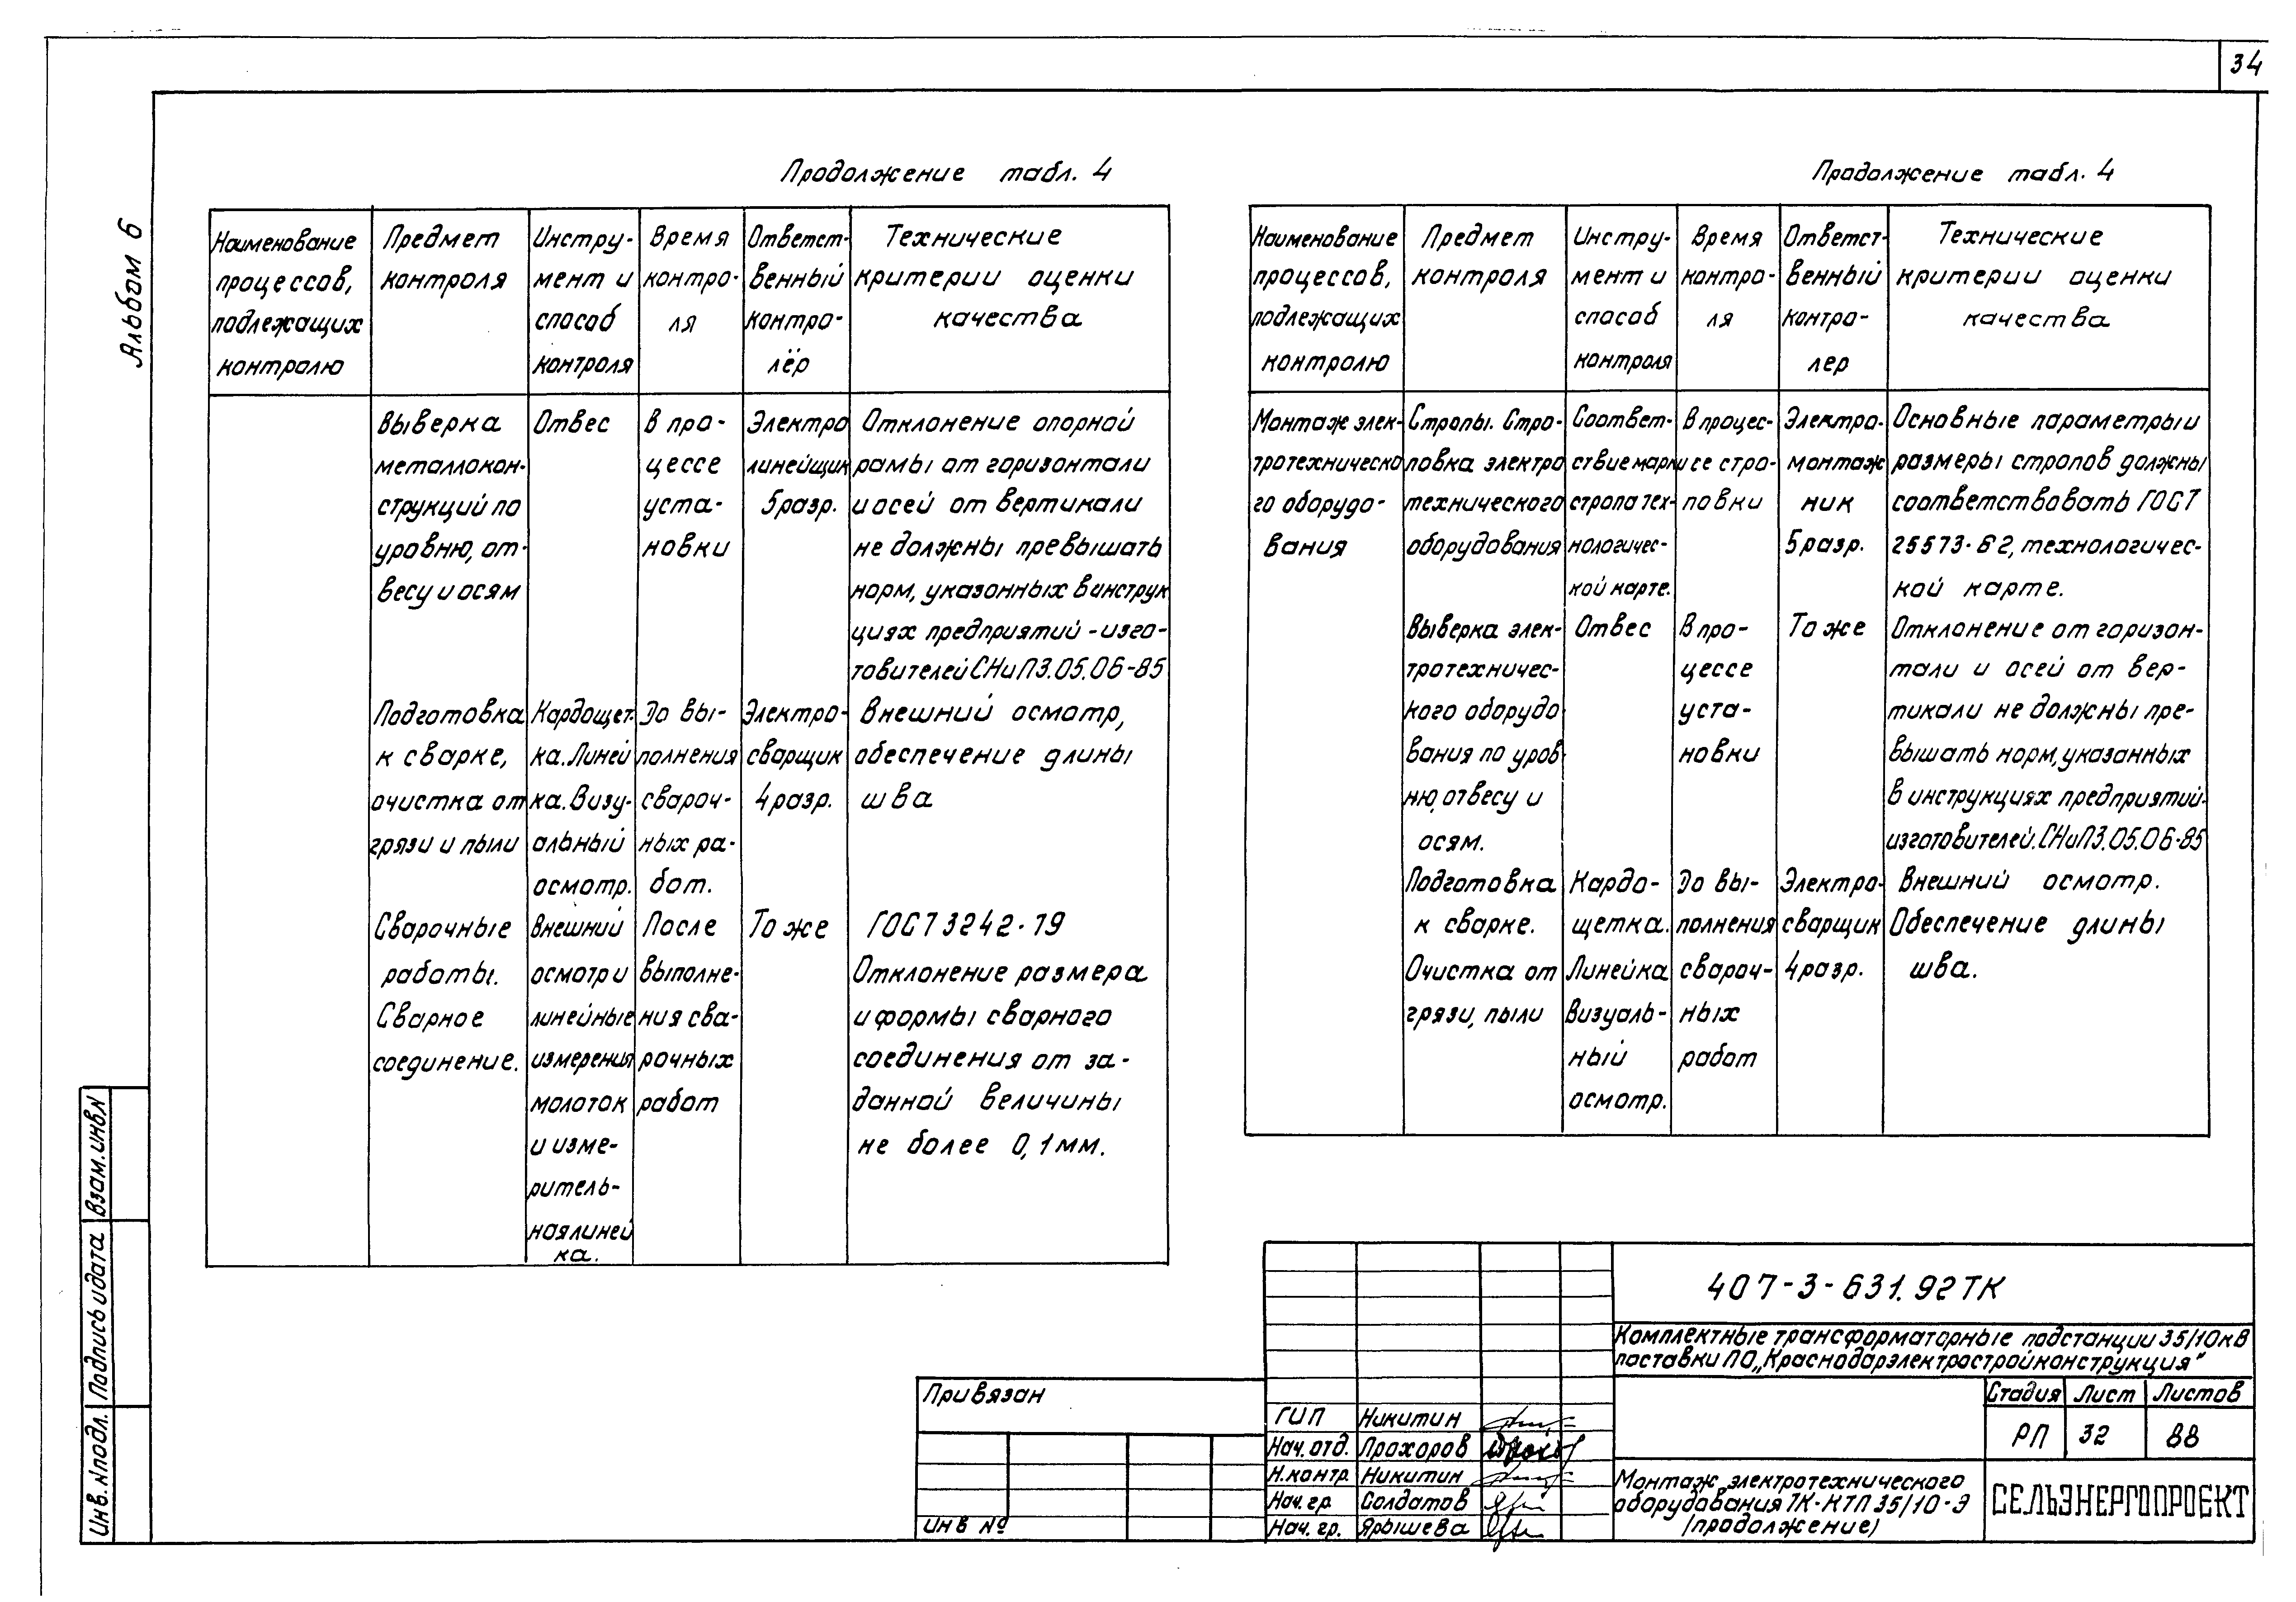 34
Альбом 6
Продолжение табл. 4
Наименование процессов, подлежащих контролю
Предмет контроля
Инстру-
мент и
способ
контроля
Время
контро-
ля
Ответст-
венный
контро-
лёр
Технические
критерии оценки
качества
Выверка
металлокон-
струкций по
уровню, от-
весу и осям
Отвес
В про-
цессе
уста-
новки
Электро
линейщик
5 разр.
Отклонение опорной
рамы от горизонтали
и осей от вертикали
не должны превышать
норм, указонных в инструк
циях предприятий-изго-
товителей СНиП3.05.06-85
Подготовка
к сварке,
очистка от
грязи и пыли
Кардощет-
ка. Линей
ка. Визу-
альный
осмотр.
До вы-
полнения
свароч-
ных ра-
бот.
Электро-
сварщик
4 разр.
Внешний осмотр,
обеспечение длины
шва
Сварочные
работы.
Сварное
соединение.
Внешний
осмотр и
линейные
измерения
молоток
и изме-
ритель-
ная линей
ка.
После
выполне-
ния сва-
рочных
работ
То же
ГОСТ 3242-79
Отклонение размера
и формы сварного
соединения от за-
данной величины
не более 0,1мм.
Продолжение табл. 4
Наименование
процессов,
подлежащих
контролю
Предмет
контроля
Инстру-
мент и
способ
контроля
Время
контро-
ля
Ответст-
венный
контро-
лер
Технические
критерии оценки
качества
Монтаж элек-
тротехническо
го оборудо-
вания
Стропы. Стро-
повка электро
технического
оборудования
Соответ-
ствие марки
стропа тех-
нологичес-
кой карте.
В процес-
се стро-
повки
Электро-
монтаж
ник
5 разр.
Основные параметры и
размеры стропов должны
соответствовать ГОСТ
25573-82, технологичес-
кой карте.
Выверка элек-
тротехничес-
кого оборудо
вания по уров
ню, отвесу и
осям.
Отвес
В про-
цессе
уста-
новки
То же
Отклонение от горизон-
тали и осей от вер-
тикали не должны пре-
вышать норм, указанных
в инструкциях предприятий-
изготовителей. СНиП3.05.06-85
Подготовка
к сварке.
Очистка от
грязи, пыли
Кардо-
щетка.
Линейка
Визуаль-
ный
осмотр.
До вы-
полнения
свароч-
ных
работ
Электро-
сварщик
4 разр.
Внешний осмотр.
Обеспечение длины
шва.
Взам. инв N
Подпись и дата
Инв. N подл.
Привязан
Инв №
ГИП Никитин
Нач. отд. Прохоров
Н. контр. Никитин
Нач. гр. Солдатов
Нач. гр. Ярышева
407-3-631.92ТК
Комплектные трансформаторные подстанции 35/10кВ
поставки ПО „Краснодарэлектростройконструкция"
Стадия Лист Листов
РП 32 88
Монтаж электротехнического
оборудования ТК-КТП 35/10-Э
(продолжение)
СЕЛЬЭНЕРГОПРОЕКТ